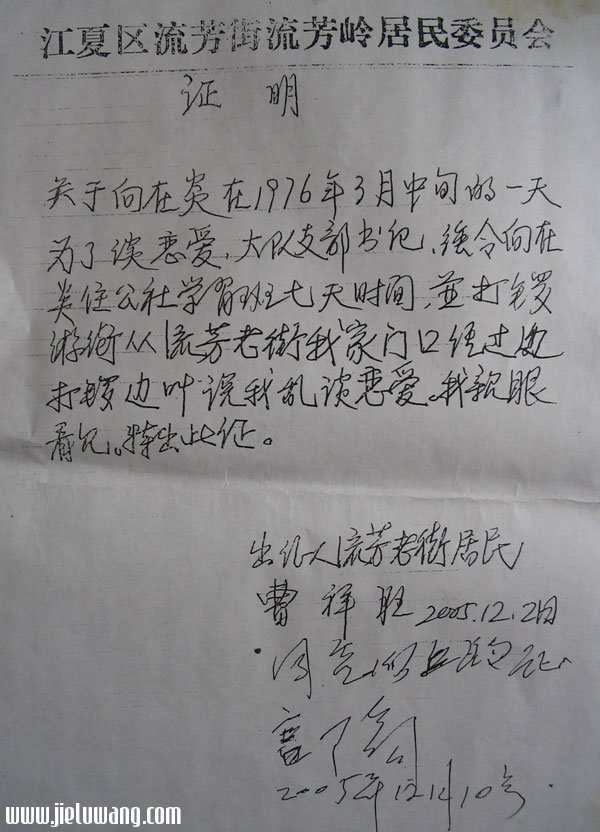 江夏区流芳街流芳岭居民委员会
证明
关于向在炎在1976年3月中旬的一天
为了谈恋爱,大队支部书记,强令向在
炎住公社学习班七天时间,並打锣
游街从流芳老街我家门口经过边
打锣边叶说我乱谈恋爱。我亲眼
看见。特出此证。
出证人流芳老街居民
曹祥旺2005.12.2日
同意以上
2005年12月10号
www.jieluwang.com